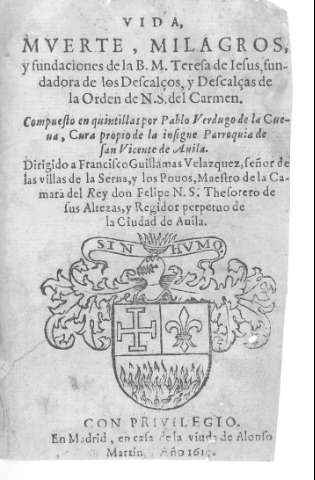 VIDA,
MVERTE, MILAGROS,
y fundaciones de la B. M. Teresa de Iesus, fun-
dadora de los Descalços, y Descalças de
la Orden de N. S. del Carmen.
Compuesto en quintillas por Pablo Verdugo de la Cue-
ua, Cura propio de la insigne Parroquia de
san Vicente de Auila.
Dirigido a Francisco Guillamas Velazquez, señor de
las villas de la Serna, y los Pouos, Maestro de la Ca-
mara del Rey don Felipe N. S. Thesorero de
sus Altezas, y Regidor perpetuo de
la Ciudad de Auila.
SIN HVMO
CON PRIVILEGIO.
En Madrid, en casa de la viuda de Alonso
Martin, Año